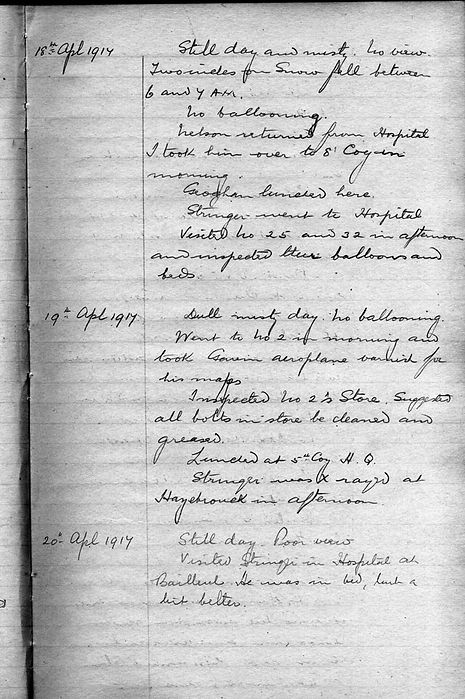 18th Apl 1917 Still day and misty. No view.
Two inches of Snow fell between
6 and 7 A.M.
No ballooning.
Nelson returned from Hospital
I took him over to 8' Coy in
morning.
Geoghan lunched here.
Stringer went to Hospital
Visited No 25 and 32 in afternoon
and inspected their balloons and
beds.
19th Apl 1917 Dull misty day. No ballooning.
Went to No 2 in morning and
took Gavin aeroplane varnish for
his maps
Inspected No 2's Store. Suggested
all bolts in store be cleaned and
greased.
Lunched at 5th Coy H.Q.
Stringer was X rayed at
Hazebrouck in afternoon
20th Apl 1917 Still day. Poor view
Visited Stringer in Hospital at
Bailleul. He was in bed, but a
bit better.